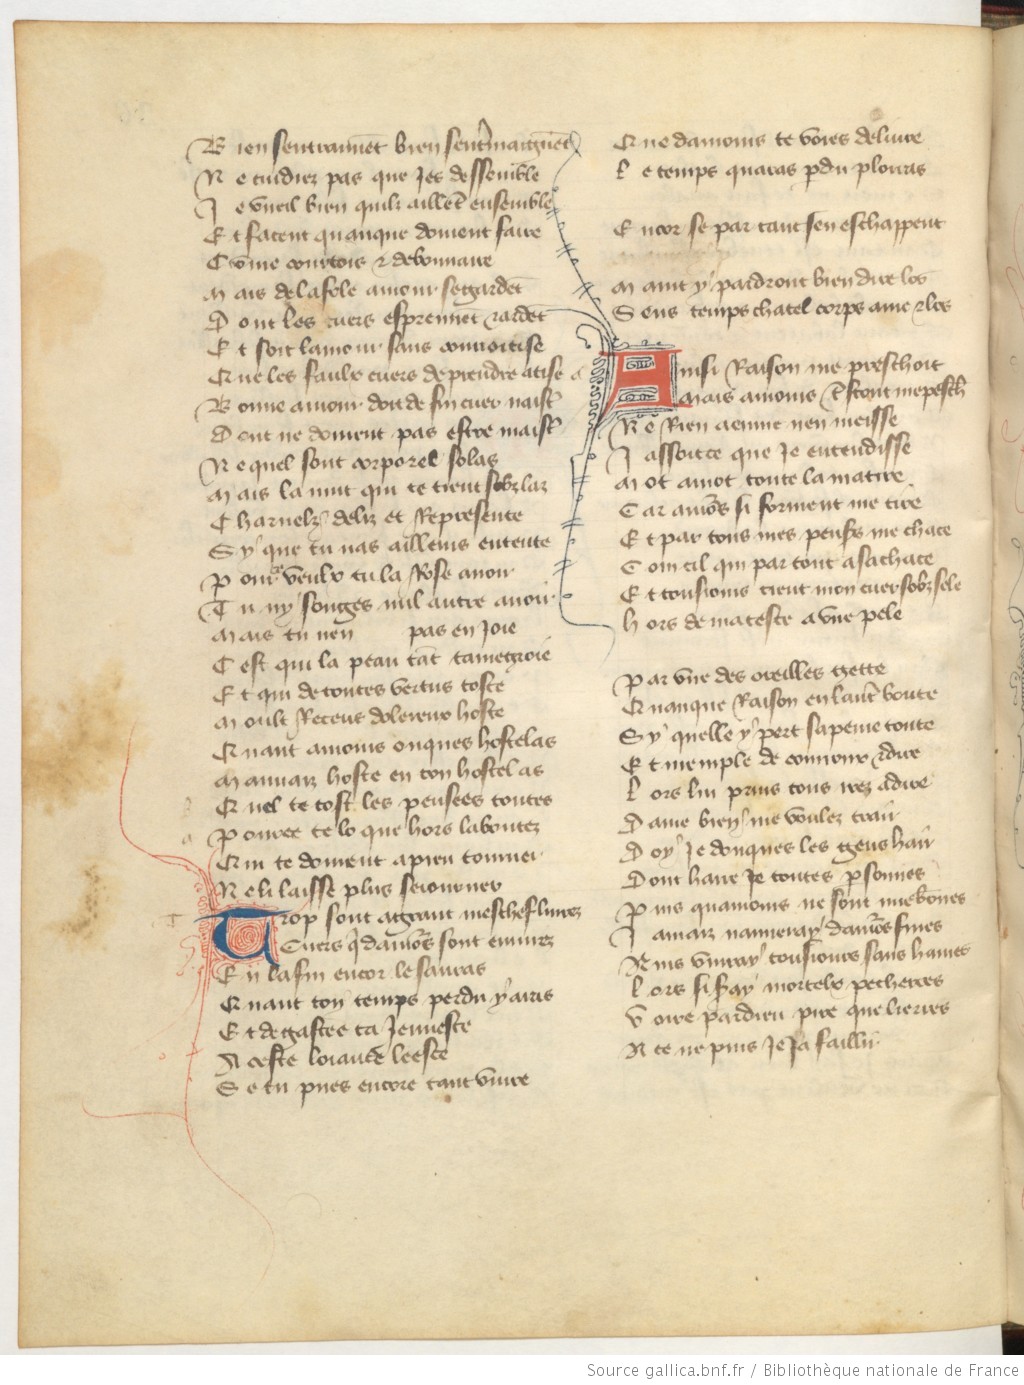 B ien sentraimēt bien sentͬmaignēt
N e cuidiez pas que Jes dessemble
J e vueil bien quilz aillēt ensemble
E t facent quanque doiuent faire
C ōme courtois et debonnaire
M ais de la fole amour se gardēt
D ont les cuers esprennēt et ardēt
E t soit lamour sans conuoitise
Q ue les faulx cuers de prendre atise
B onne amour doit de fin cuer naistͬ
D ont ne doiuent pas estre maistͬ
N e quel sont corporel solas
M ais lamour qui te tient subz laz
C harnelz deliz et Represente
S y que tu nas ailleurs entente
P our veulx tu la Rose auoir
T u ny songes nul autre auoir
M ais tu nen pas en Joie
C est qui la peau tāt tamegroie
E t qui de toutes vertus toste
M oult Receus dolereux hoste
Q uant amours onques hostelas
M auuaiz hoste en ton hostel as
Q uel te tost les pensees toutes
P ource te lo que hors la boutez
Q ui te doiuent a pieu tourner
N e li laisse plus seiourner
Trop sont a grant meschef liurez
Cuers q̄ damōs sont enurez
E n la fin encor le sauras
Q uant ton temps perdu y auras
E t degastee ta Jeuneste
A ceste loiande leesce
S e tu pues encore tant viure
Q ue damours te voies deliure
L e temps quaras pdu plouras
E ncor se par tant sen eschappent
M aint y pardront bien dire los
S ens temps chatel corps ame et los
Ainsi Raison me preschoit
Mais amours tͬstout mepeschͬ
R e Rien a euure nen meisse
J assoitce que Je entendisse
M ot a mot toute la matire
C ar amōs si forment me tire
E t par tous mes pensers me chace
C om cil qui par tout a sachace
E t tousiours tient mon cuer subz sele
H ors de ma teste a vne pele
P ar vne des oreilles gette
Q uanque Raison en lautͬ boute
S y quelle y pert sa peine toute
E t memple de courroux et dire
L ors lui prins tous irez a dire
D ame bien me voulez traīr
D oy Je donques les gens haīr
D ont haire Je toutes psonnes
P uis quamours ne sont mie bōnes
J amaiz nameray damōs fines
A ins viuray tousiours sans haines
L ors si sray mortelx pecheres
V oire par dieu pire que lierres
A ce ne puis Je Ja faillir
Source gallica.bnf.fr / Bibliothèque nationale de France